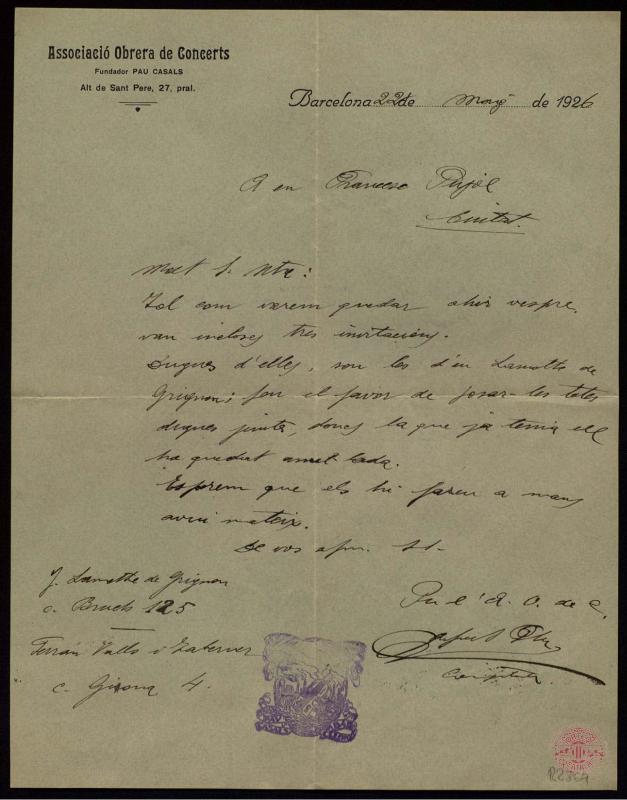 Associació Obrera de Concerts
Fundador PAU CASALS
Alt de Sant Pere, 27, pral.
Barcelona 22 de Maig de 1926
A en Francesc Pujol
Ciutat.
Molt Sr. Ntre:
Tal com varem quedar ahir vespre,
van incloses tres invitacions.
Dugues d'elles, son les d'en Lamothe de
Grignon; feu el favor de posar-les totes
dugues junta, doncs la que ja tenia ell
ha quedat anul·lada.
Esperem que els hi fareu a mans
avui mateix.
De vos afm. SS.
J. Lamothe de Grignon
c. Bruch 125
Ferrán Valls i Taberner
c. Girona 4.
Per l'A. O. de C.
R2364